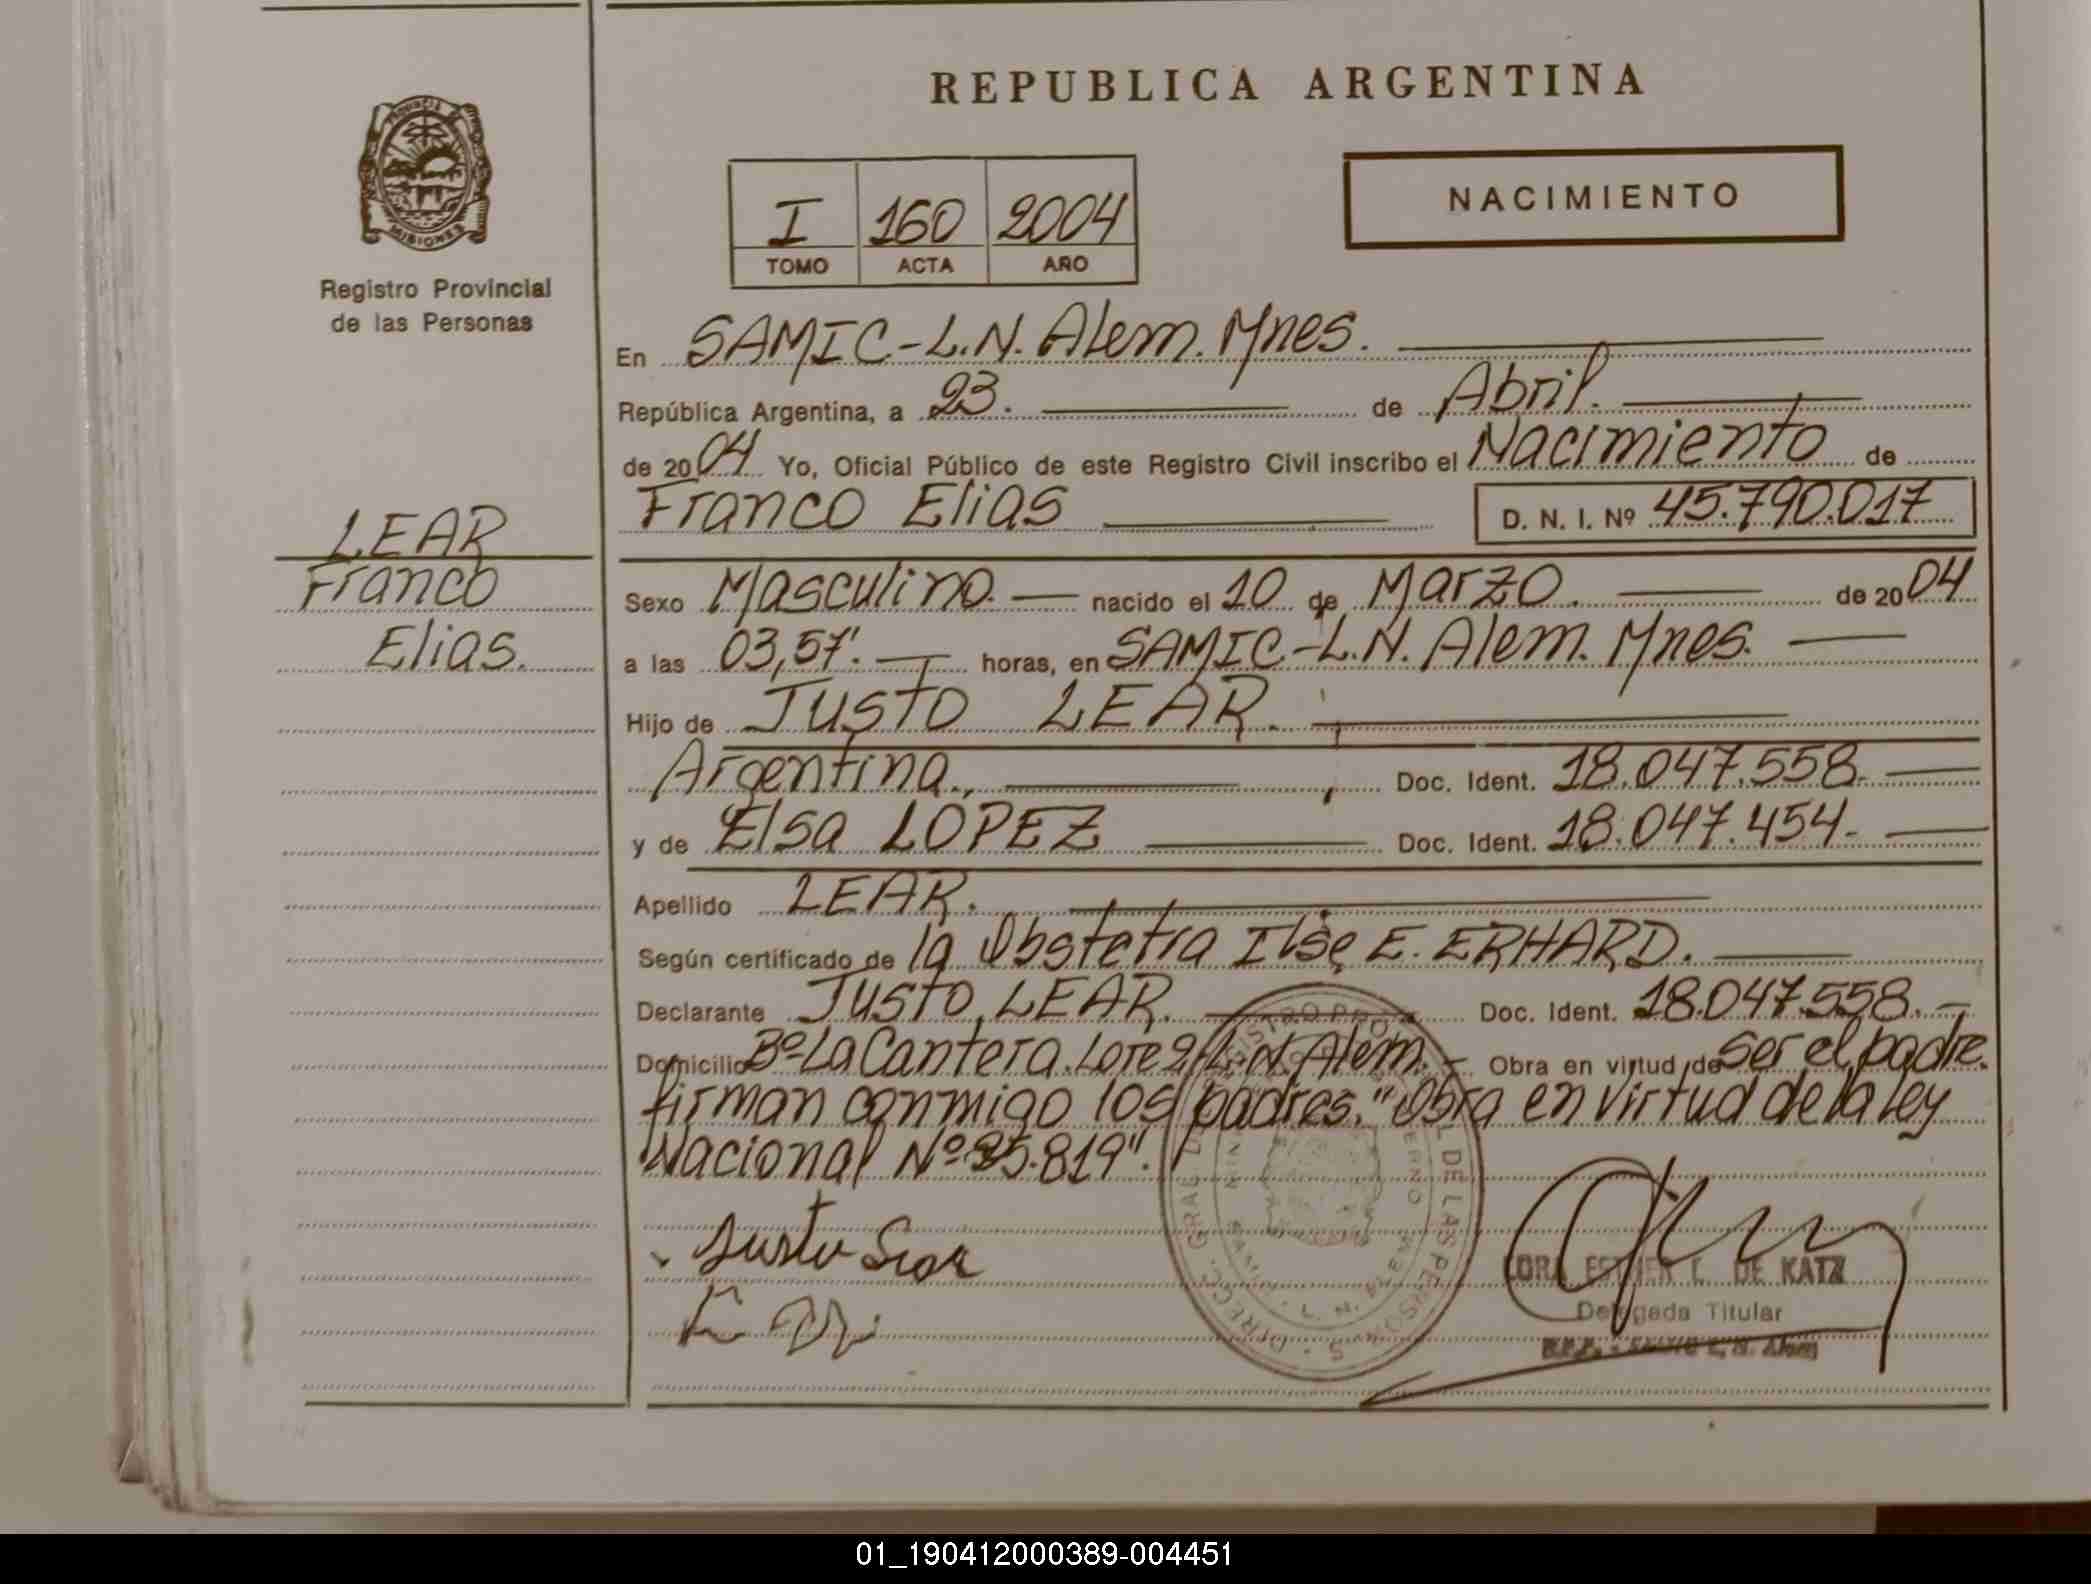 REPUBLICA ARGENTINA
PROVINCIA
MISIONES
Registro Provincial
de las Personas
I 160 2004
TOMO ACTA AÑO
NACIMIENTO
En SAMIC-L.N. Alem. Mnes.
República Argentina, a 23. de Abril.
de 2004 Yo, Oficial Público de este Registro Civil inscribo el Nacimiento de
Franco Elias D. N. I. Nº 45.790.017
LEAR
Franco
Elias.
Sexo Masculino. nacido el 10 de Marzo. de 2004
a las 03,57'. horas, en SAMIC-L.N. Alem. Mnes.
Hijo de Justo LEAR.
Argentina., Doc. Ident. 18.047.558.
y de Elsa LOPEZ Doc. Ident. 18.047.454-
Apellido LEAR.
Según certificado de la Obstetra Ilse E. ERHARD.
Declarante Justo LEAR. Doc. Ident. 18.047.558.-
Domicilio Bº La Cantera. Lote 2-L.N. Alem. Obra en virtud de ser el padre.
firman conmigo los padres. "Obra en virtud de la ley
Nacional Nº 25.819".
Justo Lear
ESTHER L. DE KATZ
Delegada Titular
R.P.P. - SAMIC L. N. Alem
01_190412000389-004451